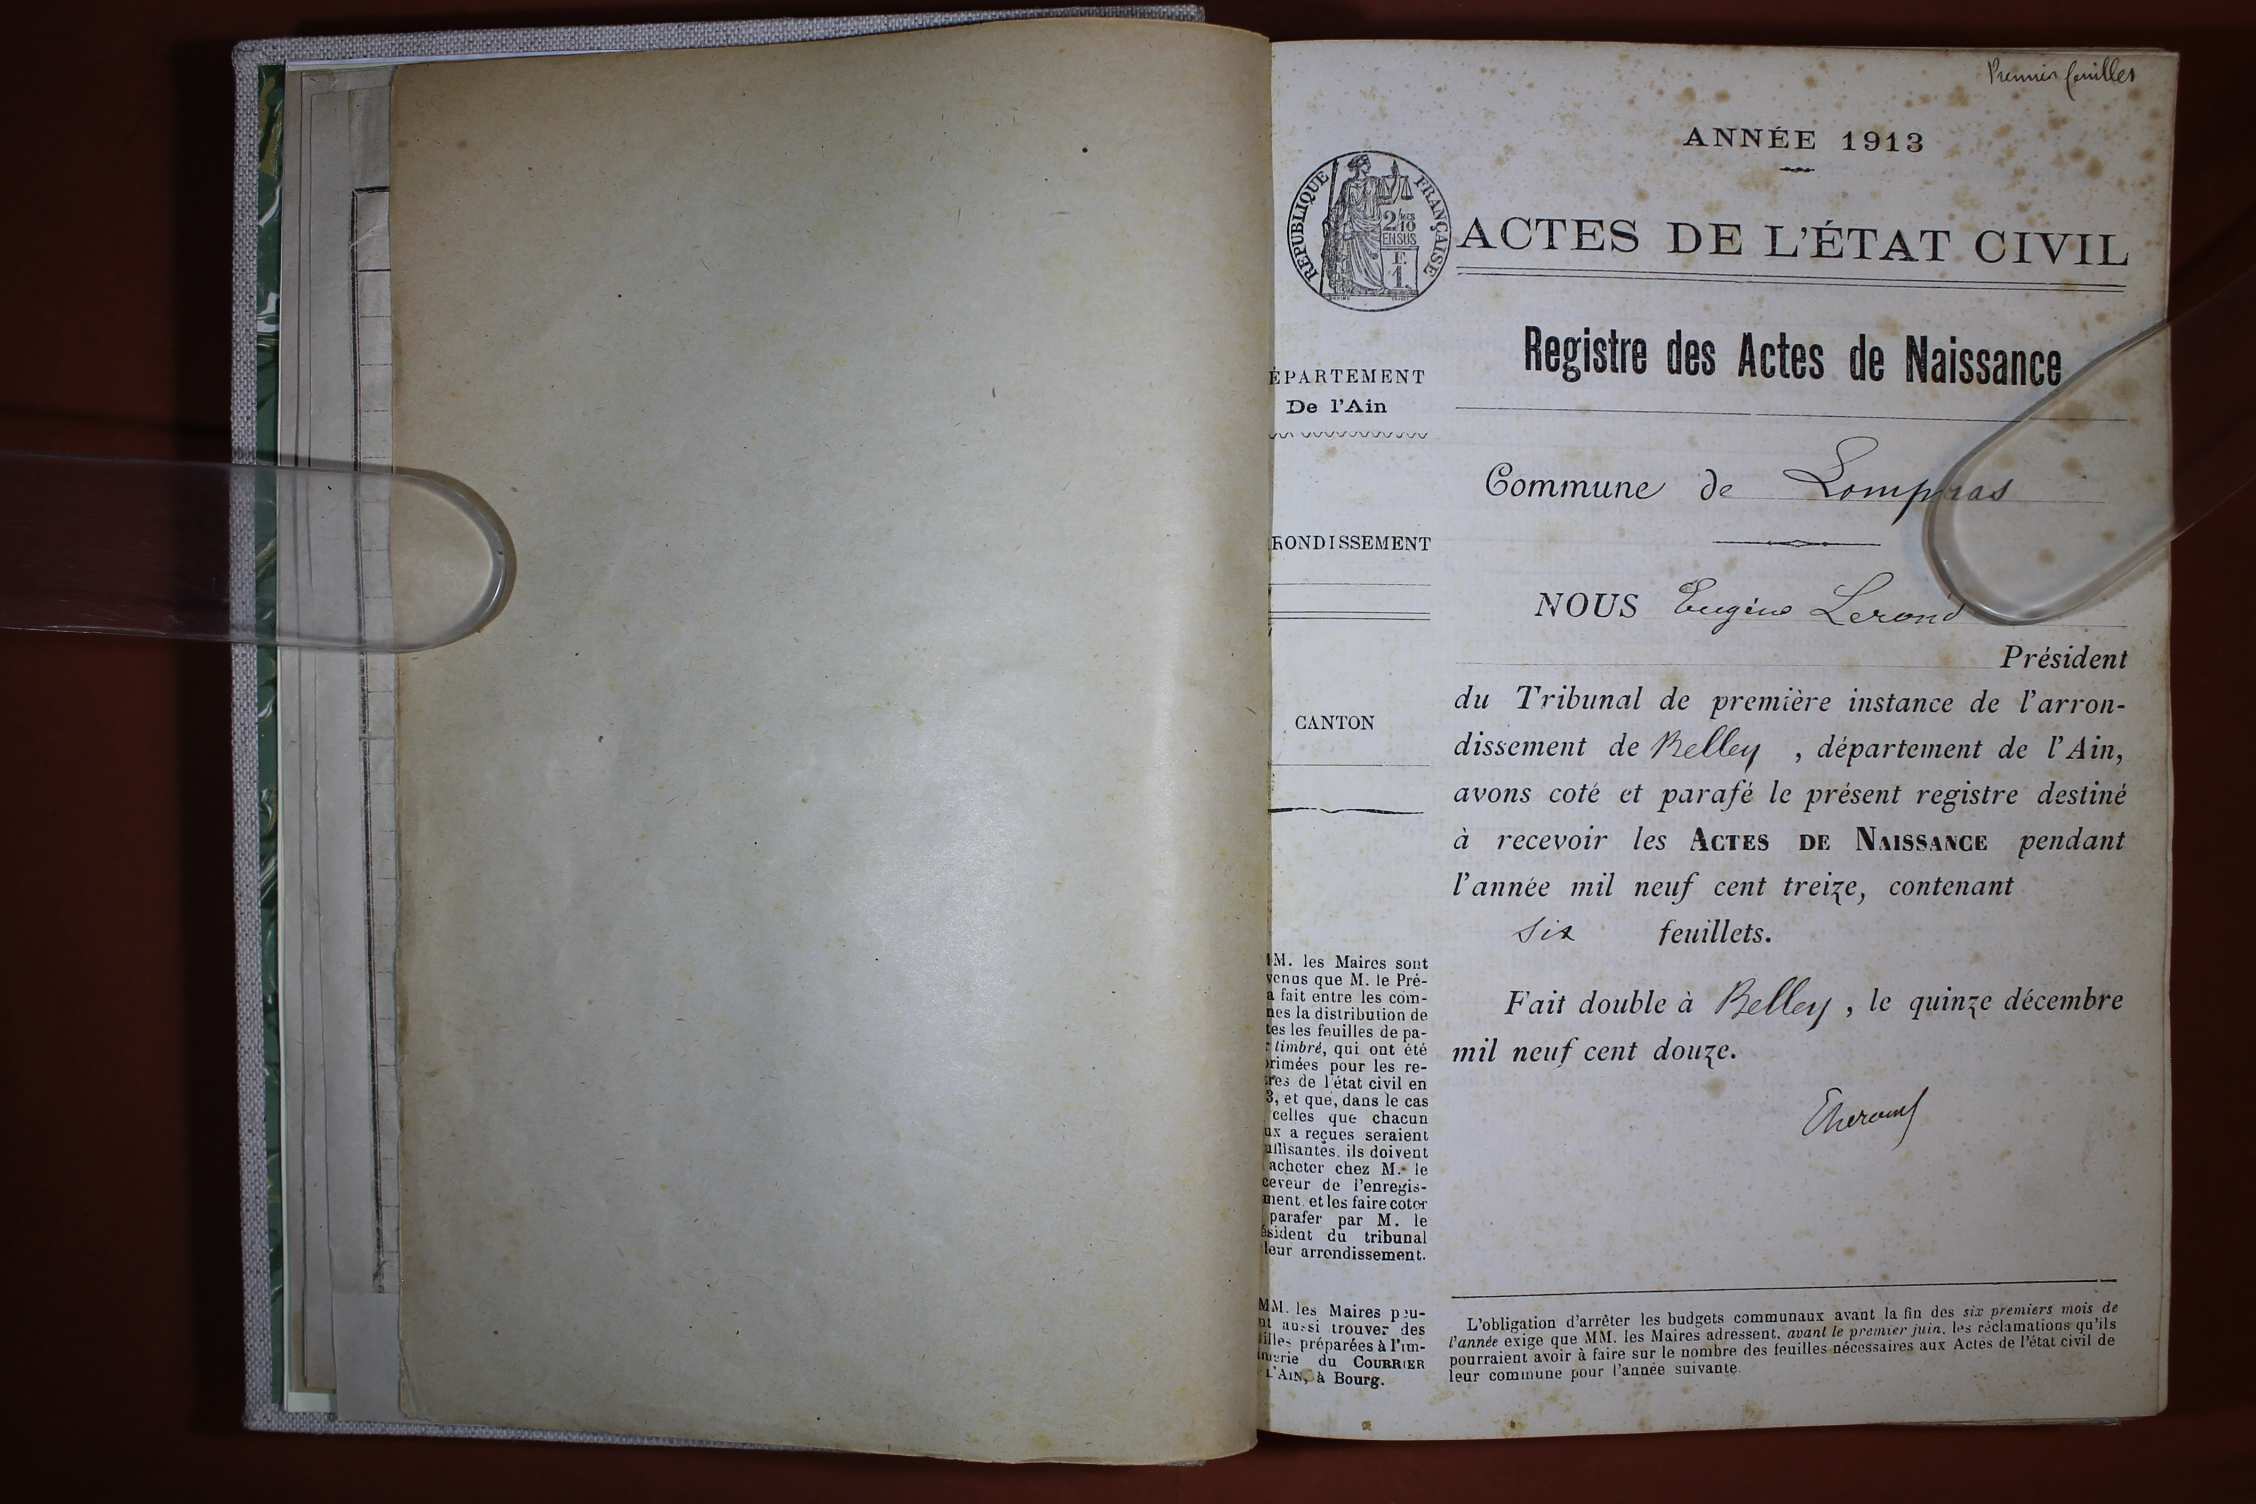 Premier feuillet
ANNÉE 1913
RÉPUBLIQUE FRANÇAISE
2/10
EN SUS
F.
1.
ACTES DE L'ÉTAT CIVIL
Registre des Actes de Naissance
ÉPARTEMENT
De l'Ain
Commune de Lompnas
RONDISSEMENT
NOUS Eugène Lerond
Président
CANTON
du Tribunal de première instance de l'arron-
dissement de Belley, département de l'Ain,
avons coté et parafé le présent registre destiné
à recevoir les ACTES DE NAISSANCE pendant
l'année mil neuf cent treize, contenant
six feuillets.
Fait double à Belley, le quinze décembre
mil neuf cent douze.
MM. les Maires sont
venus que M. le Pré-
a fait entre les com-
nes la distribution de
tes les feuilles de pa-
r timbré, qui ont été
primées pour les re-
tres de l'état civil en
3, et que, dans le cas
celles que chacun
ux a reçues seraient
uffisantes, ils doivent
acheter chez M. le
ceveur de l'enregis-
ment, et les faire coter
parafer par M. le
ésident du tribunal
leur arrondissement.
MM. les Maires peu-
nt aussi trouver des
illes préparées à l'im-
merie du COURRIER
L'AIN, à Bourg.
L'obligation d'arrêter les budgets communaux avant la fin des six premiers mois de
l'année exige que MM. les Maires adressent, avant le premier juin, les réclamations qu'ils
pourraient avoir à faire sur le nombre des feuilles nécessaires aux Actes de l'état civil de
leur commune pour l'année suivante.